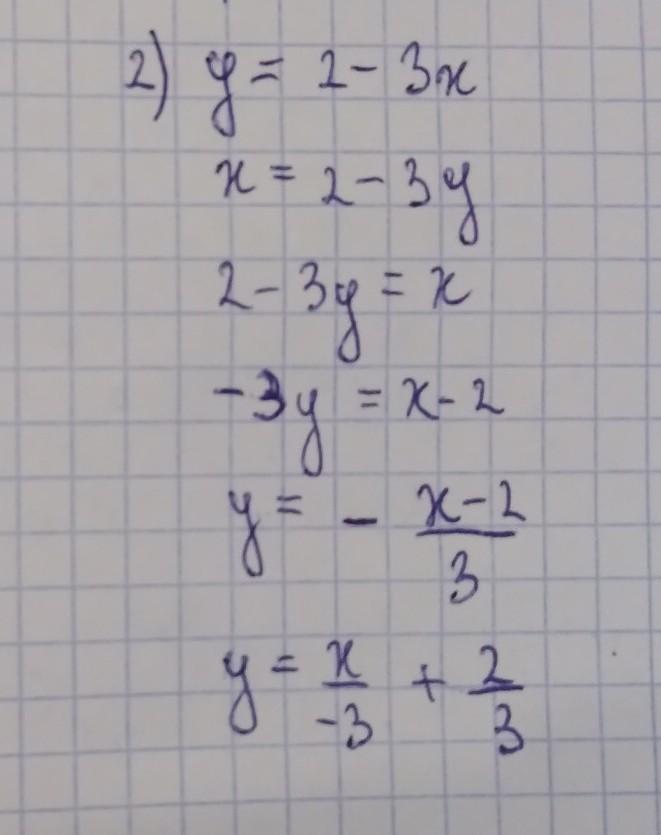 2) y = 2 - 3x
x = 2 - 3y
2 - 3y = x
-3y = x - 2
y = - \frac{x-2}{3}
y = \frac{x}{-3} + \frac{2}{3}